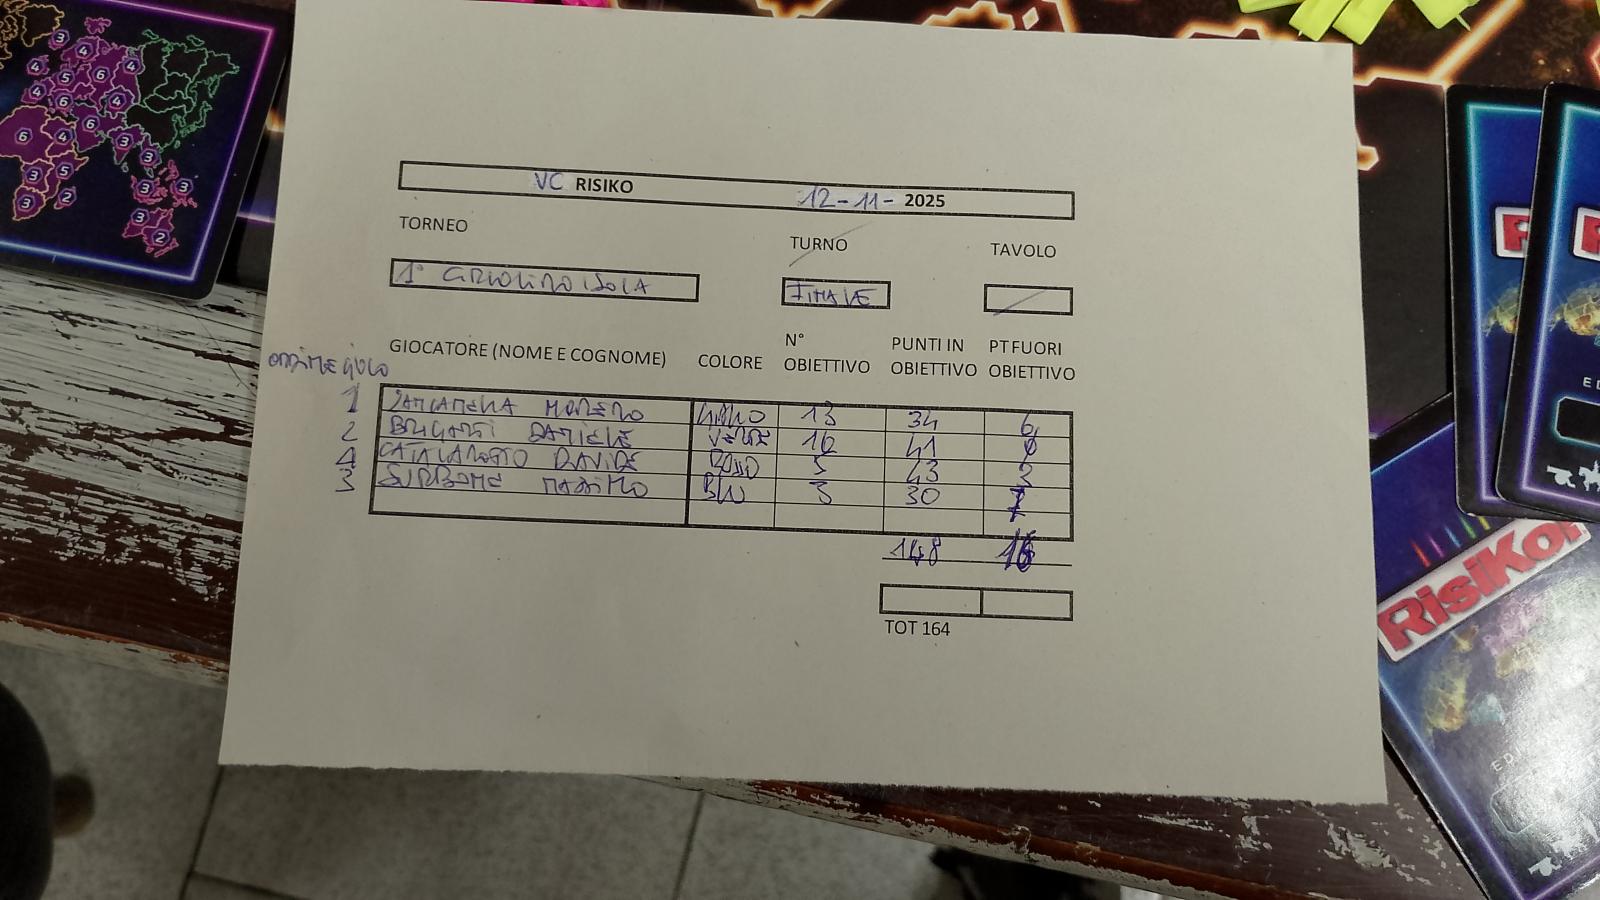 VC RISIKO 12-11- 2025
TORNEO TURNO TAVOLO
1° FINALE
ORDINE GIOCO GIOCATORE (NOME E COGNOME) COLORE N° OBIETTIVO PUNTI IN OBIETTIVO PT FUORI OBIETTIVO
1 MORENO 13 34 6
2 DANIELE VERDE 16 41 0
4 DAVIDE ROSSO 5 43 3
3 MASSIMO BLU 3 30 7
148 16
TOT 164
RisiKo!